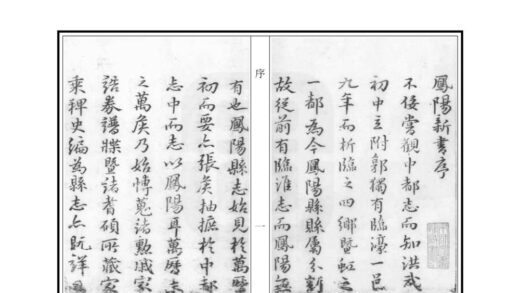 鳳陽新書序
不佞嘗觀中都志而知洪武
初中立附郭獨有臨濠一邑
九年而析臨之四鄉暨虹之
一都為今鳳陽縣縣屬新
故從前有臨淮志而鳳陽無
序
一
有也鳳陽縣志始見於萬曆
初而要亦張矦抽摭於中都
志中而志以鳳陽耳萬曆志
之萬矦乃始博蒐諸勲戚家
誥券譜牒暨諸耆碩所藏家
乘稗史編為縣志亦既詳